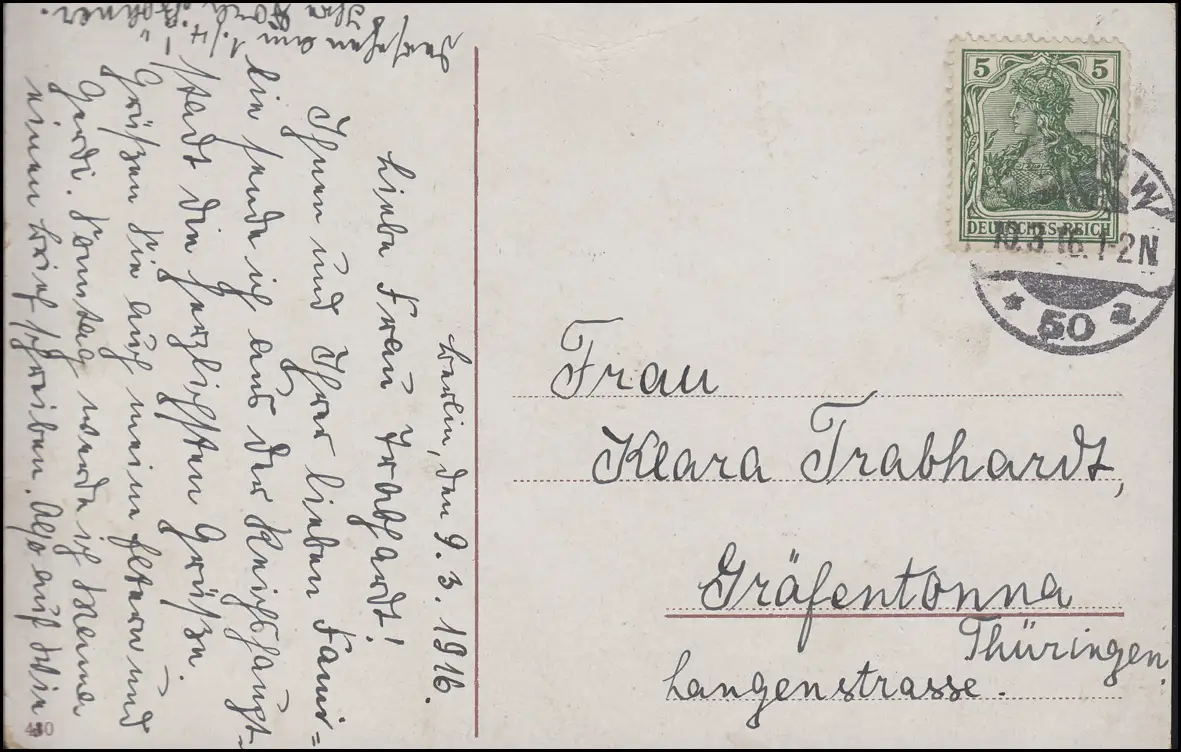 Berlin, den 9.3.1916.
Liebe Frau Trabhardt!
Ihnen und Ihrer lieben Fami=
lie sende ich aus der Reichshaupt-
stadt die herzlichsten Grüße.
Grüßen Sie auch meine Eltern und
Gerdi. Sonntag werde ich Mama
einen Brief schreiben. Also auf Wie
dersehen am 1./4.
Ihre
5 5
DEUTSCHES REICH
NW
10.3.16.1-2N
* 50 a
Frau
Klara Trabhardt,
Gräfentonna
Thüringen.
Langenstrasse.